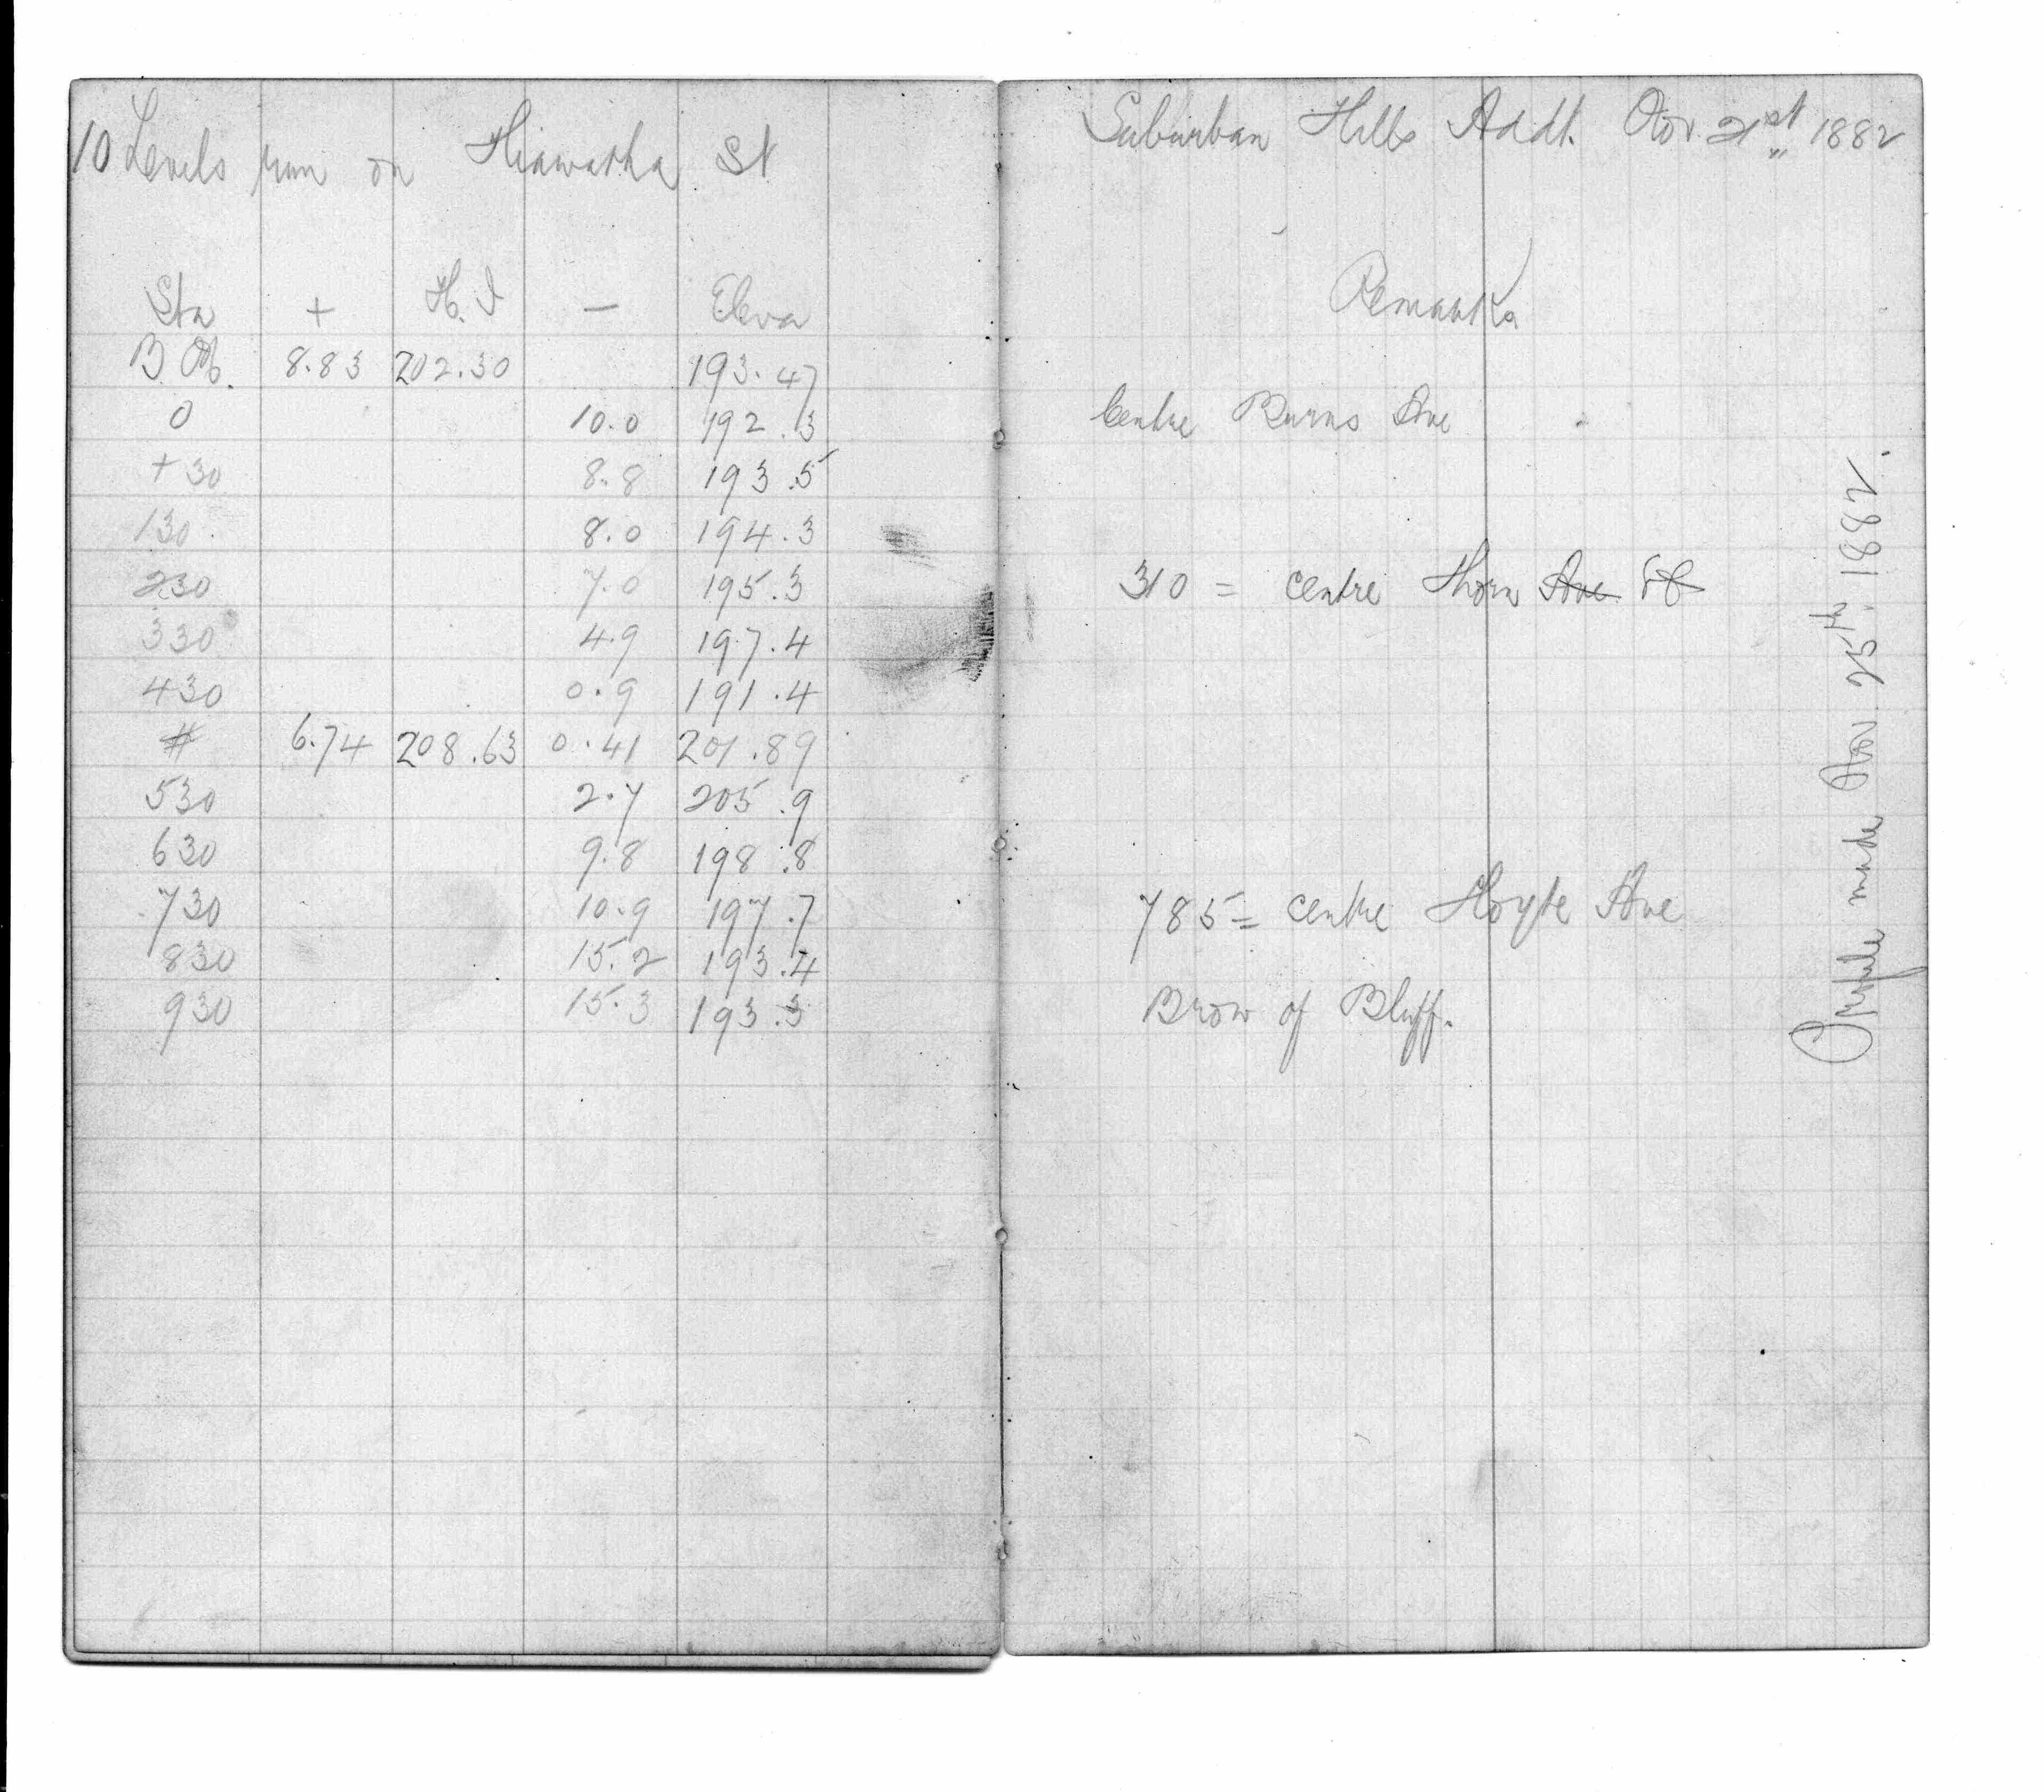 10 Levels run on Hiawatha St
Sta + H. I — Eleva
B. M. 8.83 202.30 193.47
0 10.0 192.3
+30 8.8 193.5
130 8.0 194.3
230 7.0 195.3
330 4.9 197.4
430 0.9 191.4
# 6.74 208.63 0.41 201.89
530 2.7 205.9
630 9.8 198.8
730 10.9 197.7
830 15.2 193.4
930 15.3 193.3
Suburban Hills Addt. Nov. 21st 1882
Remarks
Centre Burns Ave
310 = centre Thorn Ave St
785 = centre Hoyte Ave
Brow of Bluff.
Profile made Nov. 25th. 1882.